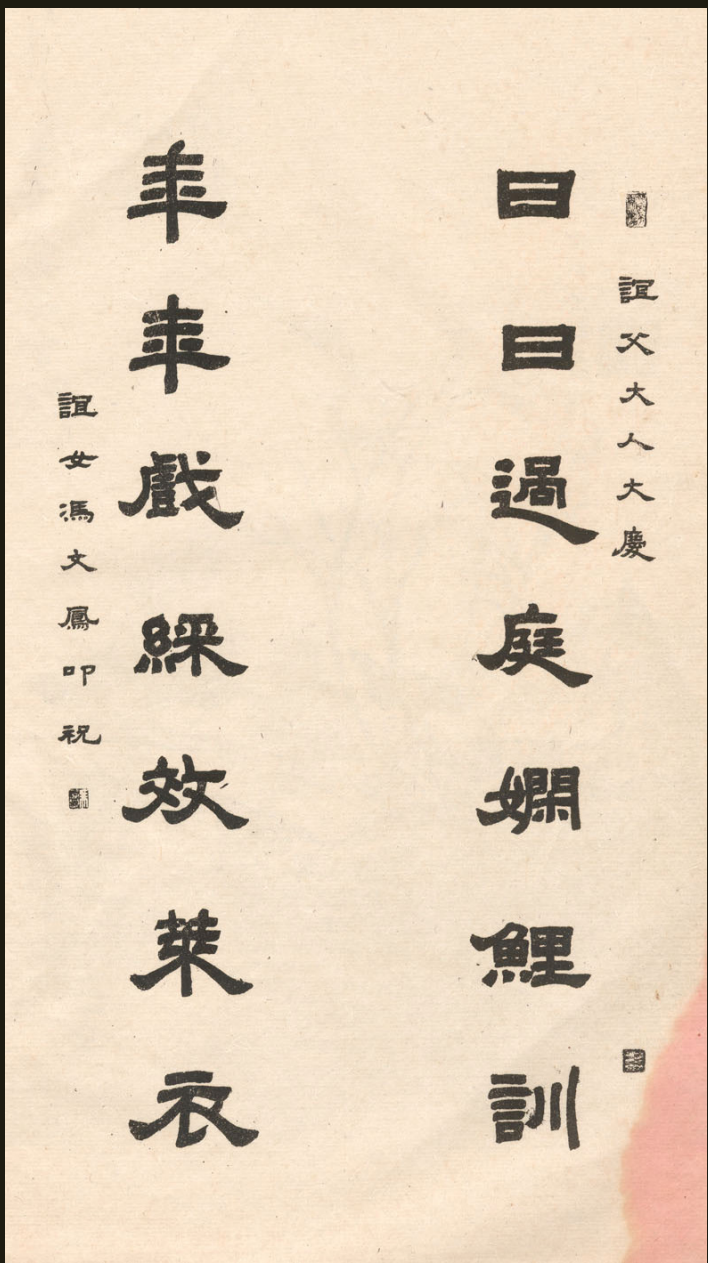 誼父大人大慶
日日過庭嫻鯉訓
年年戲綵效萊衣
誼女馮文鳳叩祝